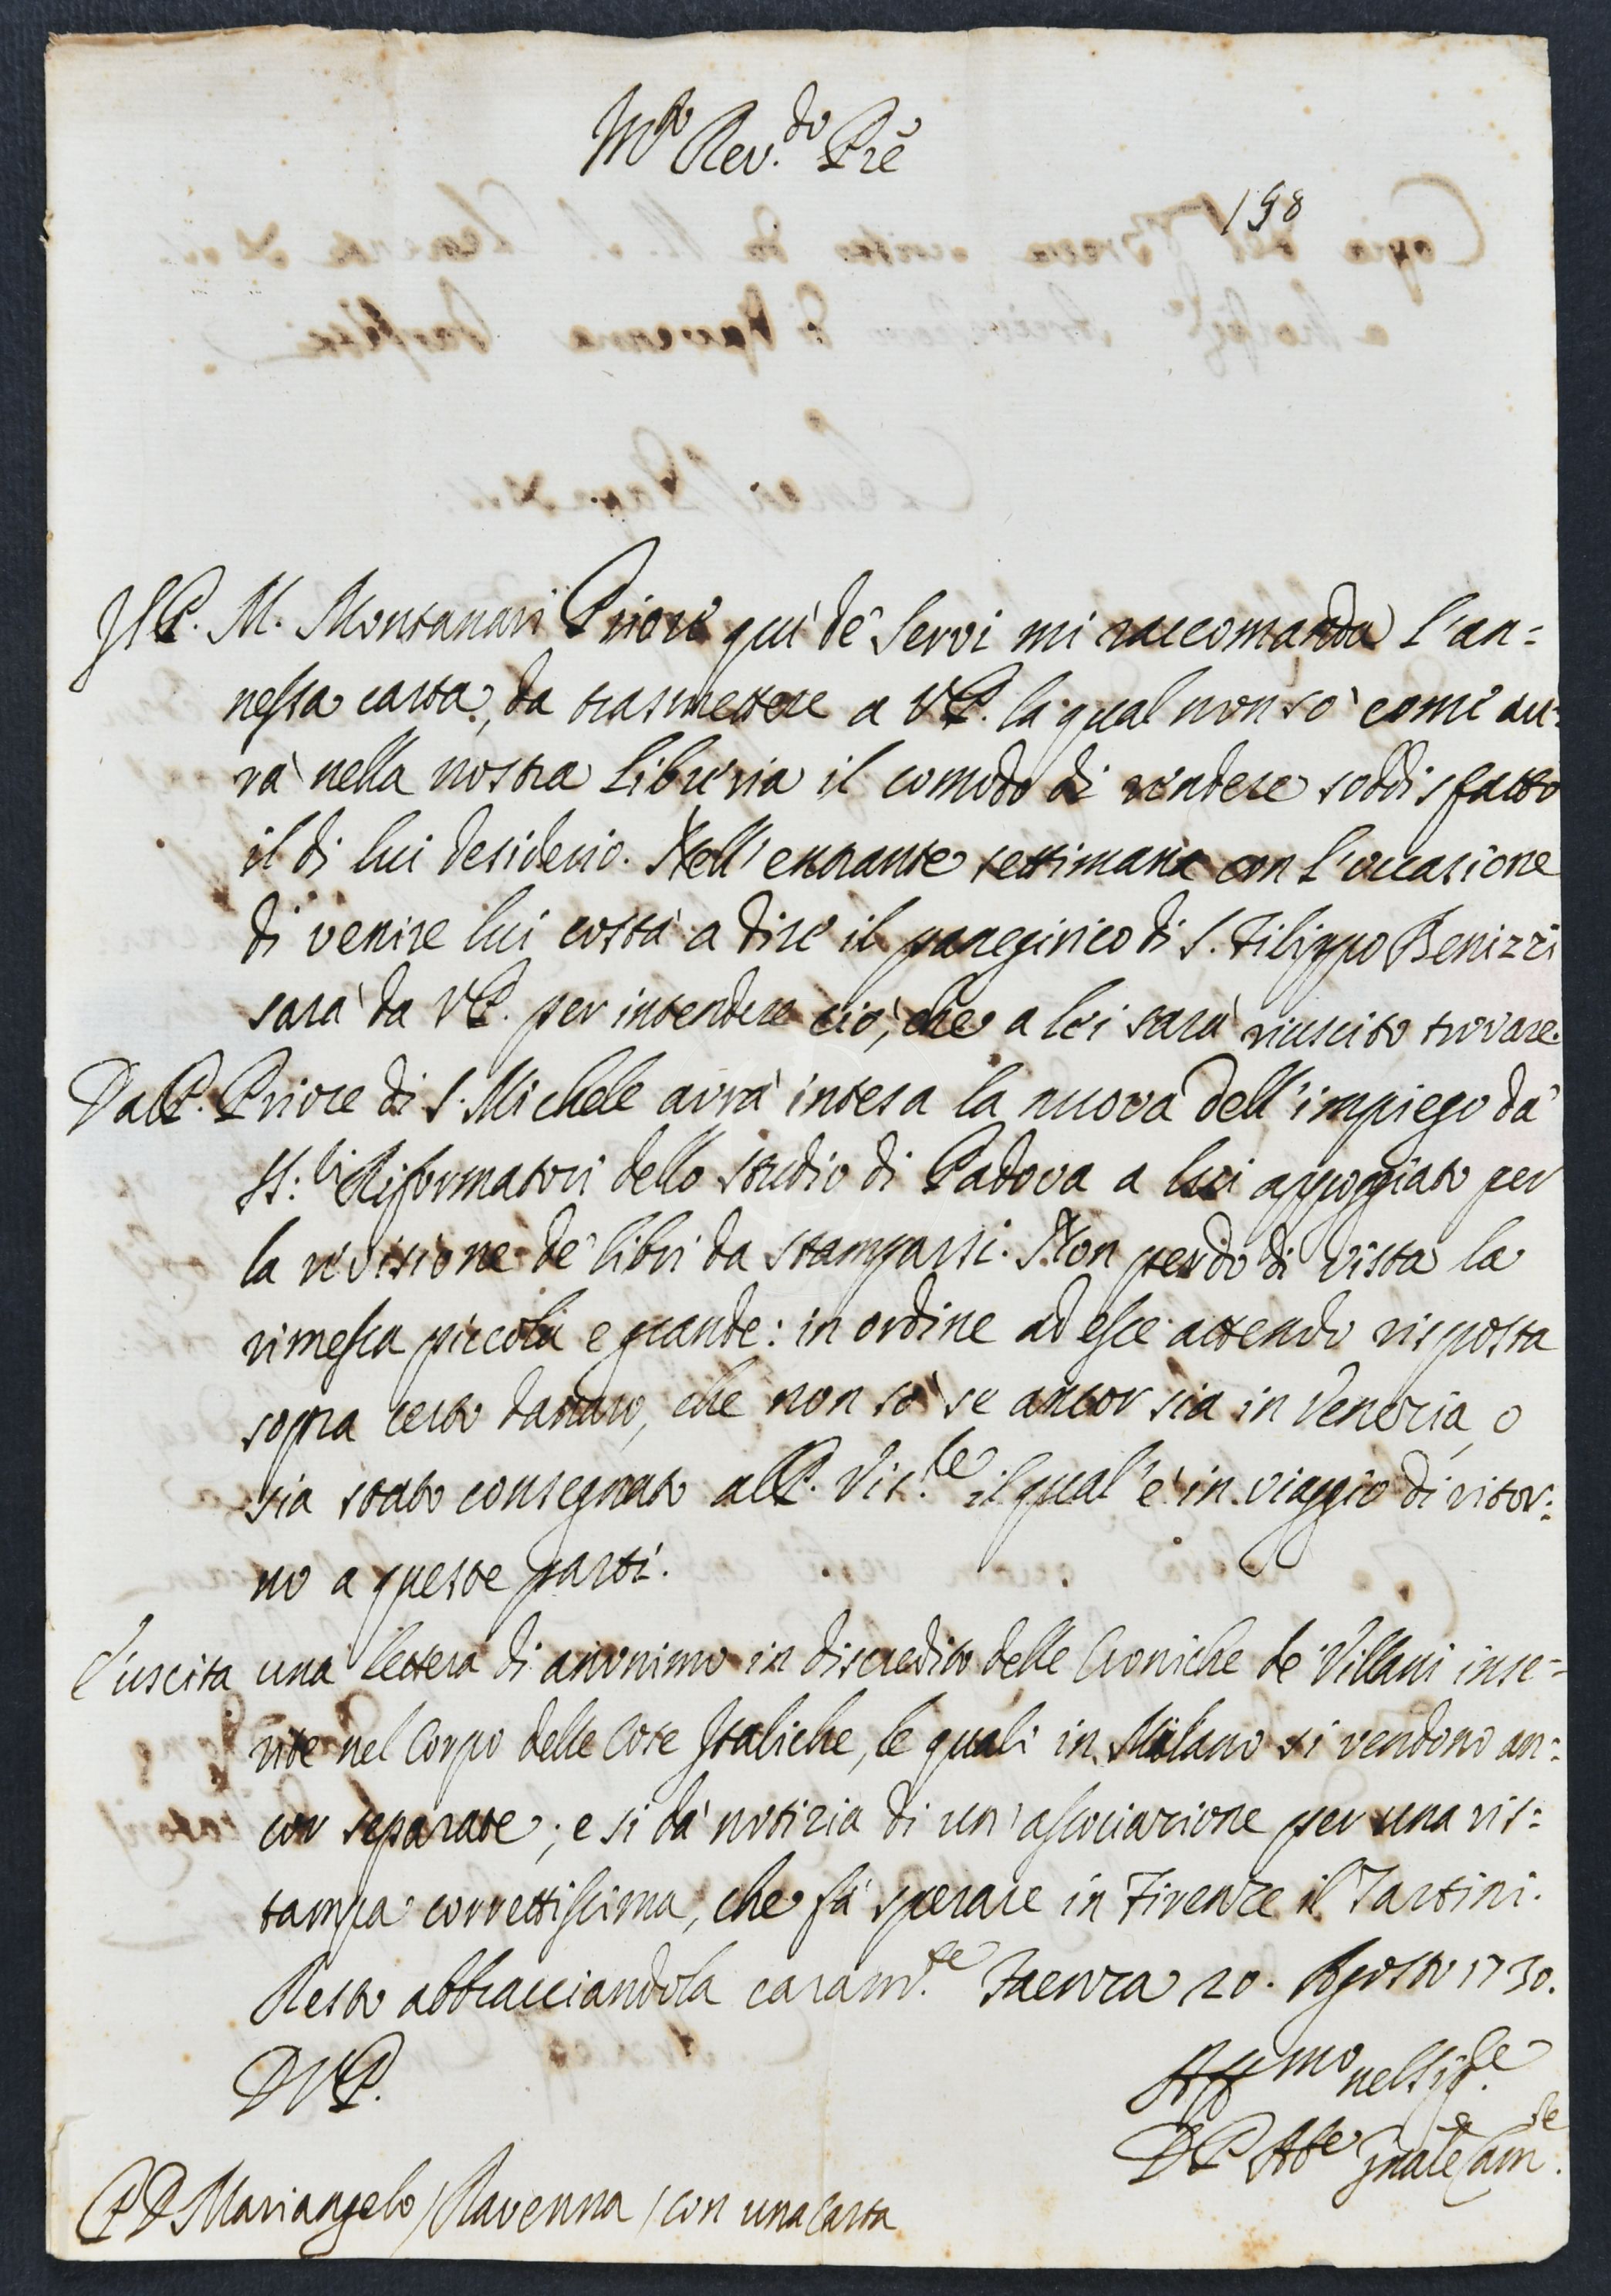 M.to Rev.do Pre
198
Il P. M. Montanari Priore quì de' Servi mi raccomanda l'an=
nessa carta, da trasmettere a V P. la qual non sò come au=
rà nella nostra Libreria il comodo di rendere soddisfatto
il di lui desiderio. Nell'entrante settimana con l'occasione
di venire lui costà a dire il panegirico di S. Filippo Benizzi
sarà da V P. per intendere ciò, che a lei sarà riuscito trovare.
Dal P. Priore di S. Michele avrà intesa la nuova dell'impiego da'
SS:ri Riformatori dello Studio di Padova a lui appoggiato per
la revisione de' libri da stamparsi. Non perdo di vista la
rimessa piccola e grande: in ordine ad esse attendo risposta
sopra certo danaro, che non sò se ancor sia in Venezia, o
sia stato consegnato al P. Vis.re il qual'è in viaggio di ritor:
no a queste parti.
È uscita una lettera di anonimo in discredito delle Croniche de' Villani inse=
rite nel Corpo delle Cose Italiche, le quali in Milano si vendono an:
cor separate; e si dà notizia di un'associazione per una ris:
tampa correttissima, che fà sperare in Firenze il Tartini.
Resto abbracciandola caram.te Faenza 20. Agosto 1730.
D V P.
Aff.mo nel Sig.re
D P Ab.e Gnãle Cam.se
P D Mariangelo / Ravenna / con una carta